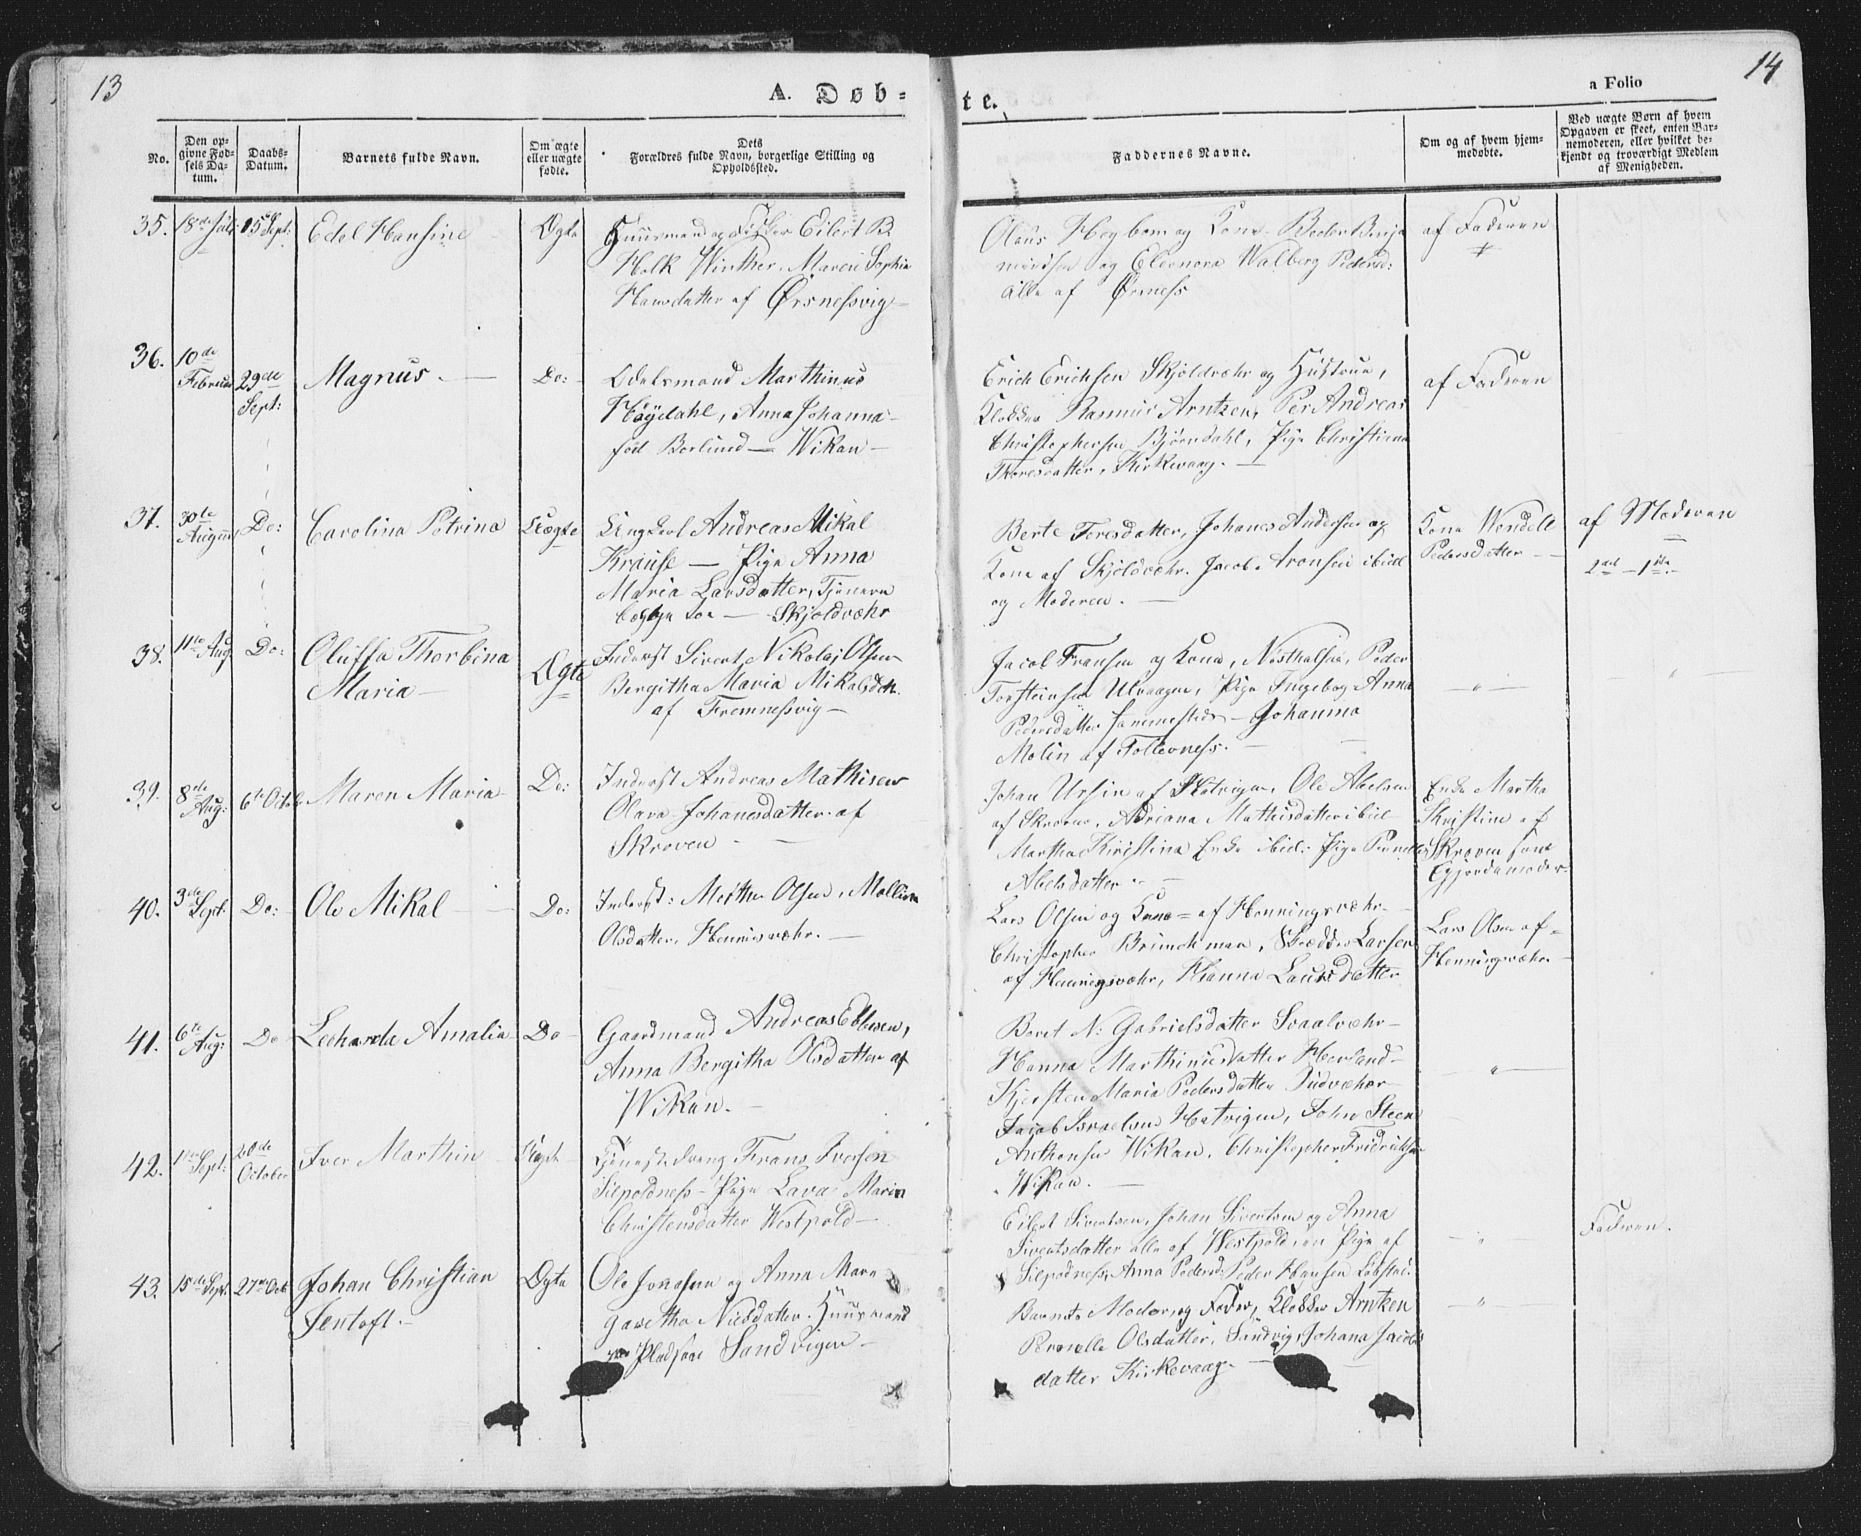 13
A. Døb-
te.
a Folio
14
No.
Den op-
givne Fød-
sels Da-
tum.
Daabs-
Datum.
Barnets fulde Navn.
Om ægte
eller uægte
fødte.
Dets
Forældres fulde Navn, borgerlige Stilling og
Opholdssted.
Faddernes Navne.
Om og af hvem hjem-
medøbte.
Ved uægte Børn af hvem
Opgaven er skeet, enten Bar-
nemoderen, eller hvilket be-
kjendt og troværdigt Medlem
af Menigheden.
35.
18de Juli
15 Sept:
Edel Hansine
Ægte
Huusmand og Fisker Eilert B.
Holk Winther, Maren Sophia
Hansdatter af Ørsnessvig
Olaus Hegbom og Kone
og Eleonora Walberg Pedersd:
alle af Ørsness
af Faderen
36.
10de
Februar
29de
Sept:
Magnus.
Do:
Odelsmand Marthinus
Høydahl, Anna Johanna
fød Borlund — Wikan
Erich Erichsen Skjoldvæhr og Hustrue,
Klokker Rasmus Arntzen, Per Andreas
Christophersen Bjørndahl, Pige Christiana
Thoresdatter, Kirkevaag.
af Faderen
37.
30te
August
Do:
Carolina Petrina
Uægte
Ungkarl Andreas Mikal
Krause — Pige Anna
Maria Larsdatter, Tjenere
begge toe — Skjoldvæhr
Berte Toresdatter, Johanes Andersen og
Kone af Skjoldvæhr. Jacob Aronsen ibid
og Moderen.
Kone Wendell
Pedersdatter
af Moderen
2det — 1ste
38.
11te Aug:
Do:
Oluffa Thorbina
Maria
Ægte
Inderst Sivert Nikolaj Olsen
Bergitha Maria Mikalsdtr.
af Fremnessvig
Jacob Fransen og Kone, Peder
Torsteinsen Ulvaagen, Pige Ingebog Anna
Pedersdatter sammesteds — Johanna
Molin af Follevness.
39.
8de
Aug:
6te Octob
Maren Maria
Do:
Inderst Andreas Mathisen
Olava Johanesdatter af
Skroven
Johan Ursin af Ole Abelsen
af Skroven, Adriana Mathisdatter ibid
Martha Kristina Enke ibid: Pige
Abelsdatter
Enke Martha
Kristine af
Skroven
Gjordemoder
40.
3de
Sept:
Do:
Ole Mikal
Do:
Inderst: Morthen Olsen,
Olsdatter, Henningsvæhr.
Lars Olsen og Kone = af Henningsvæhr
Christopher Brinchman, Larsen
af Henningsvæhr, Hanna Laursdatter
Lars Olsen af
Henningsvæhr
41.
6te
Aug:
Do
Leonarda Amalia
Do
Gaardmand Andreas Ebbesen,
Anna Bergitha Olsdatter af
Wikan.
Beret N: Gabrielsdatter Svaalvæhr
Hanna Marthinusdatter
Kjersten Maria Pedersdatter
Jacob Israelsen Hatvigen, John Steen
Anthonsen Wikan, Christopher Fridriksen
Wikan.
42.
Sept:
20de
October
Iver Marthin
Uægte
Tjenestedreng Frans Iversen
Silpoldness — Pige Lava Maria
Christensdatter Westpold
Eilert Sivertsen, Johan Sivertsen og Anna
Sivertsdatter alle af Westpold, en Pige af
Silpoldness, Anna Pedersd: Peder Hansen
Faderen.
43.
15de Sept:
27de Oct
Johan Christian
Jentoft.
Ægte
Ole Jonassen og Anna Mar
garetha Nielsdatter. Huusmand
Pladsen Sandvigen
Barnets Moder og Fader, Klokker Arntzen
Pernelle Olsdatter, Sandvig, Johana Jacobs
datter Kirkevaag.